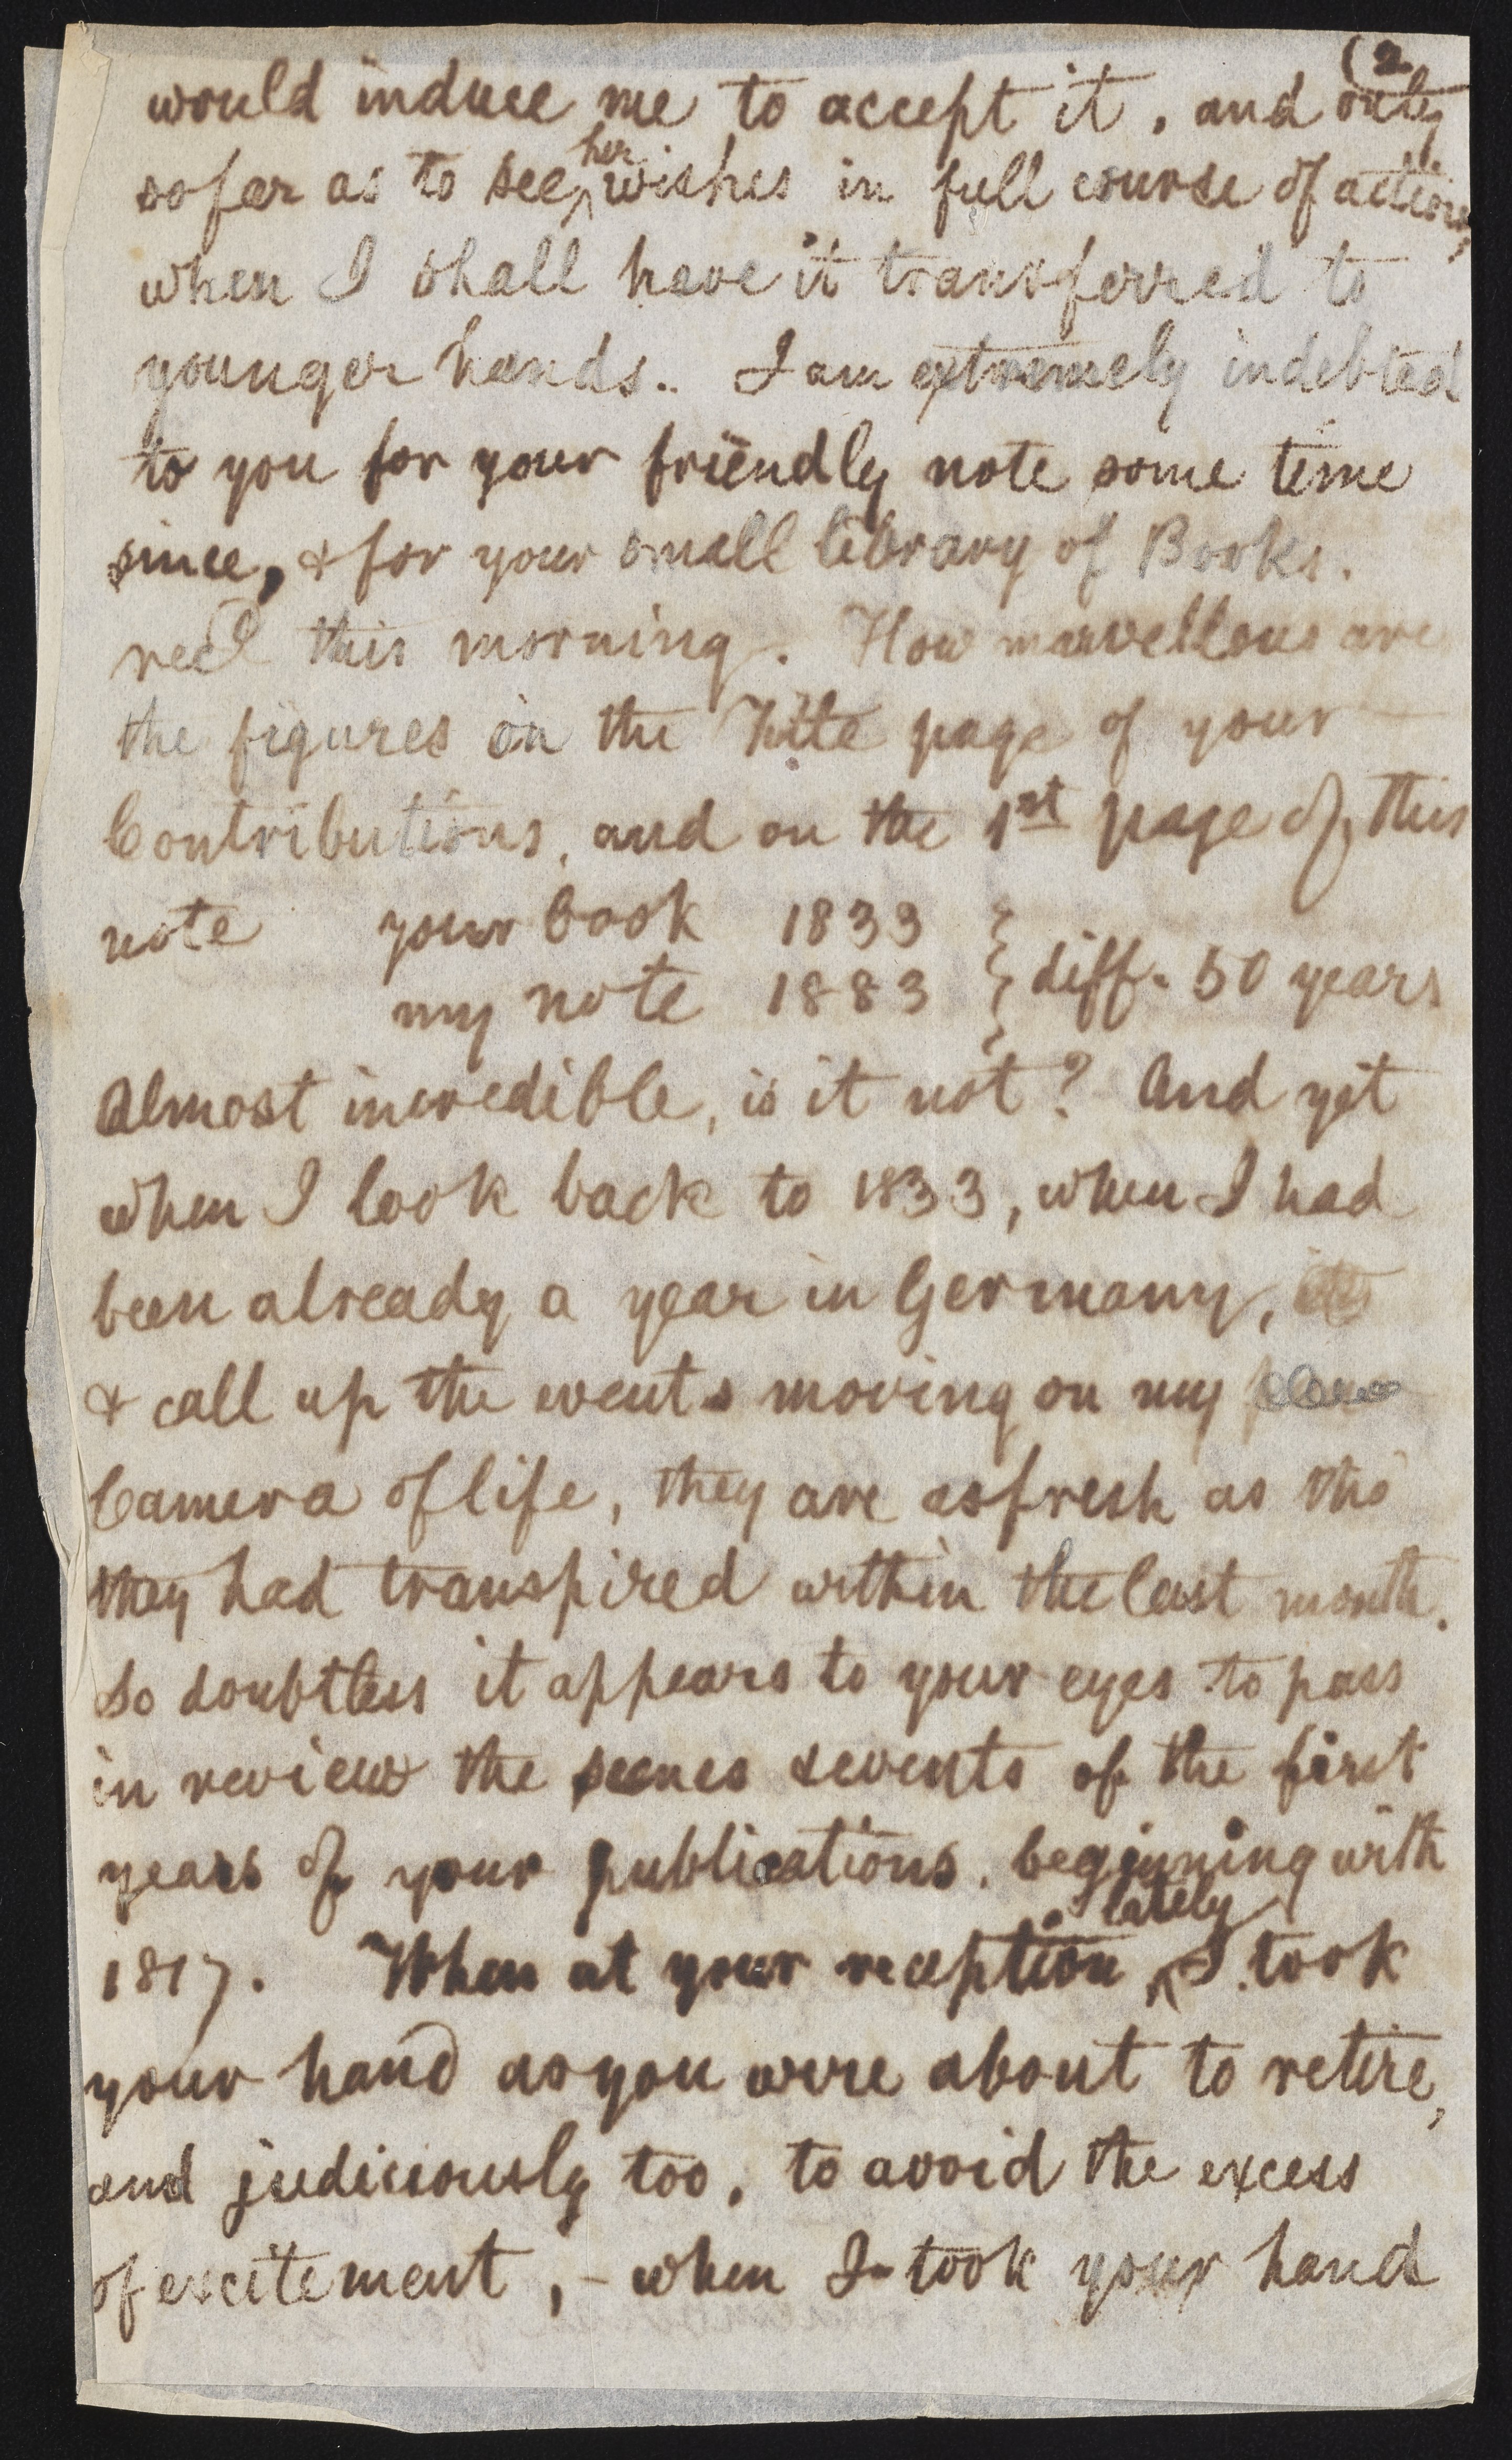 (2.
would induce me to accept it, and only
so far as to see her wishes in full course of action,
when I shall have it transferred to
younger hands.. I am extremely indebted
to you for your friendly note some time
since, & for your small library of Books.
rec'd this morning. How marvellous are
the figures on the Title page of your
Contributions, and on the 1st page of this
note your book 1833
my note 1883 } diff. 50 years
Almost incredible, is it not? And yet
when I look back to 1833, when I had
been already a year in Germany,
& call up the events moving on my
Camera of life, they are as fresh as tho'
they had transpired within the last month.
So doubtless it appears to your eyes to pass
in review the scenes & events of the first
years of your publications, beginning with
1817. When at your reception lately I took
your hand as you were about to retire,
and judiciously too, to avoid the excess
of excitement, - when I took your hand